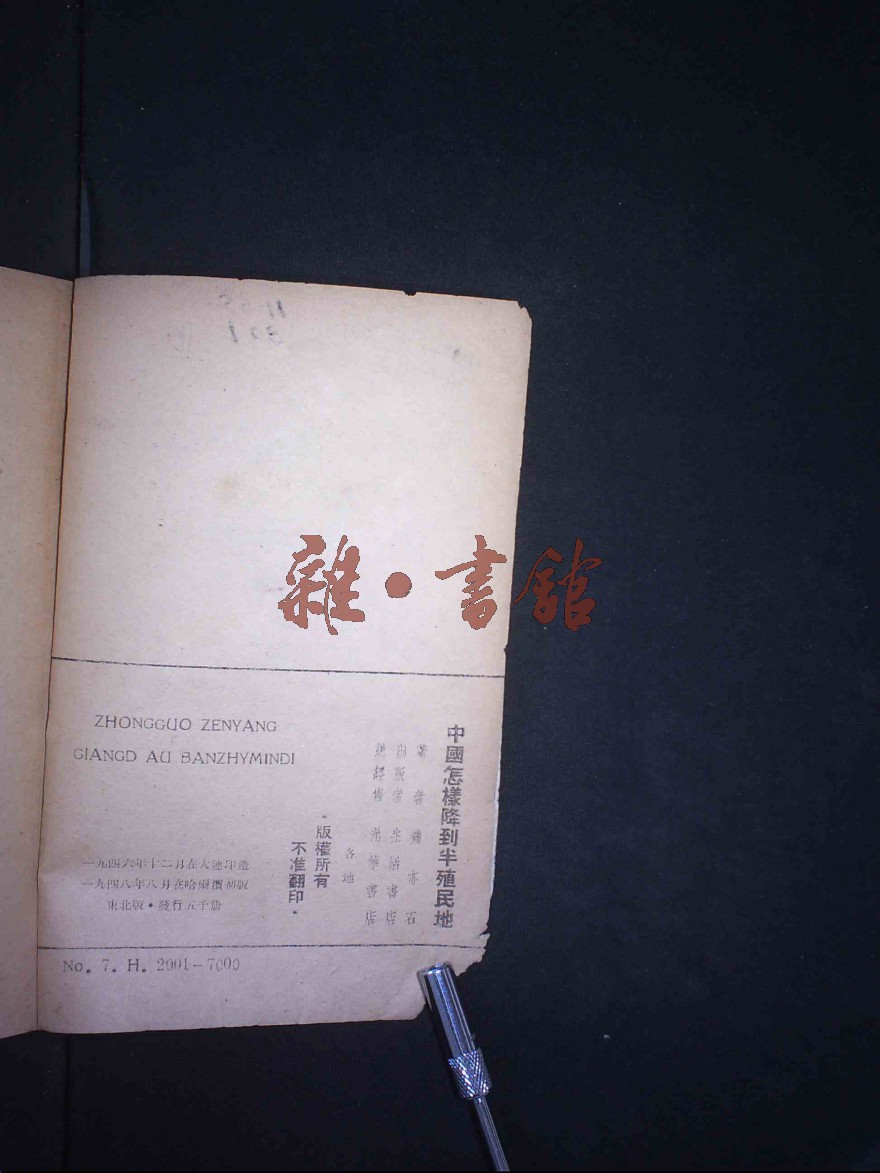 中國怎樣降到半殖民地
著者 龔亦石
出版者 生活書店
總經售 光華書店
各地
·版權所有
不准翻印·
ZHONGGUO ZENYANG
GIANGD AU BANZHYMINDI
一九四六年十二月在大連印造
一九四八年八月在哈爾濱初版
東北版·發行五千册
No. 7. H. 2001-7000
雜·書館